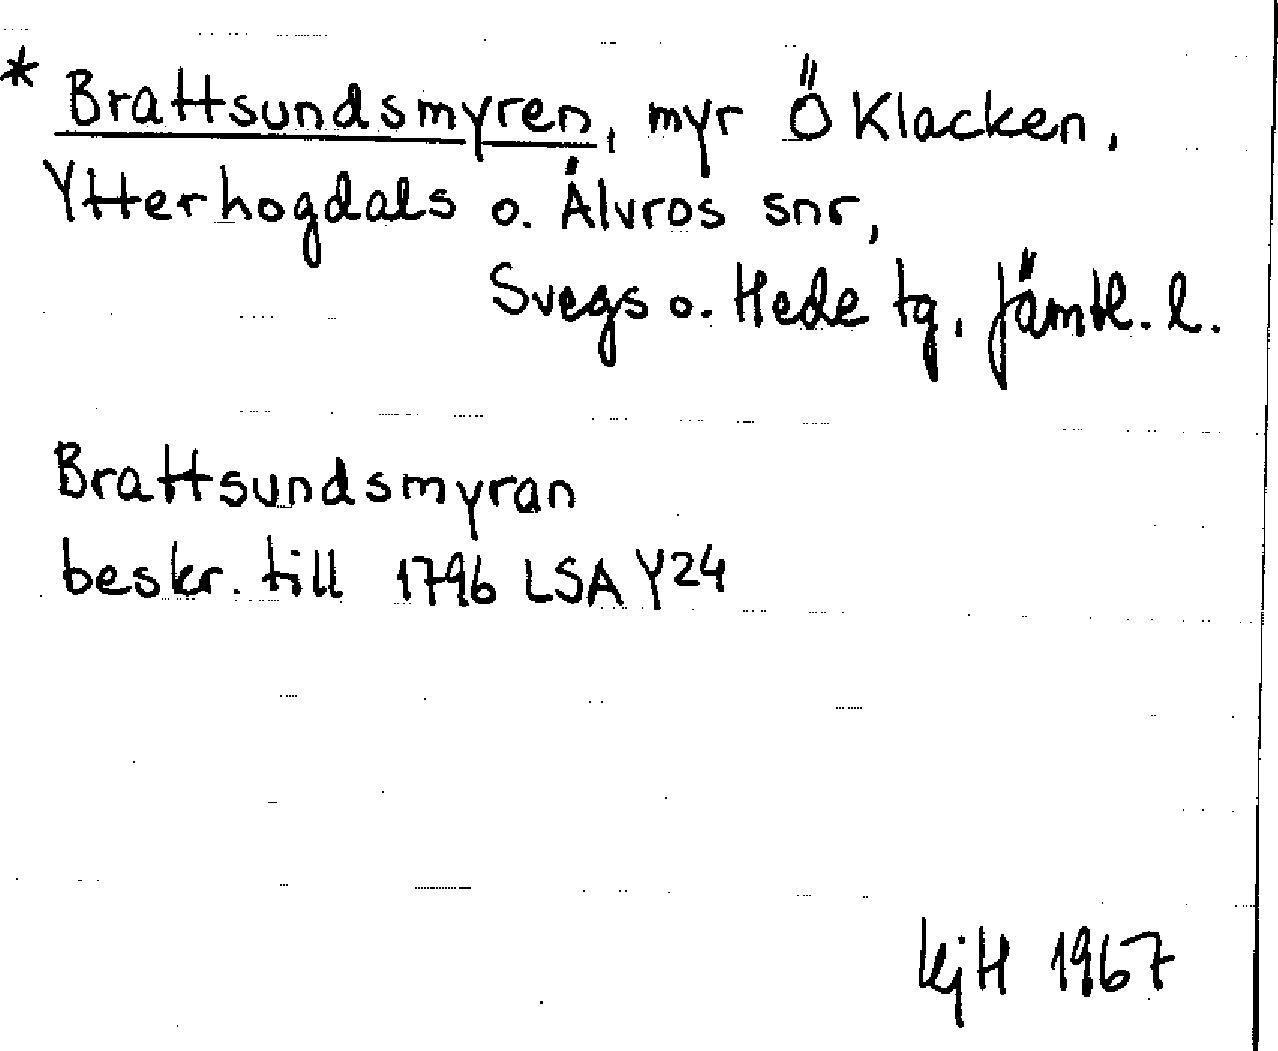 * Brattsundsmyren, myr Ö Klacken,
Ytterhogdals o. Älvros snr,
Svegs o. Hede tg, Jämtl. l.
Brattsundsmyran
beskr. till 1796 LSA Y24
KjH 1967